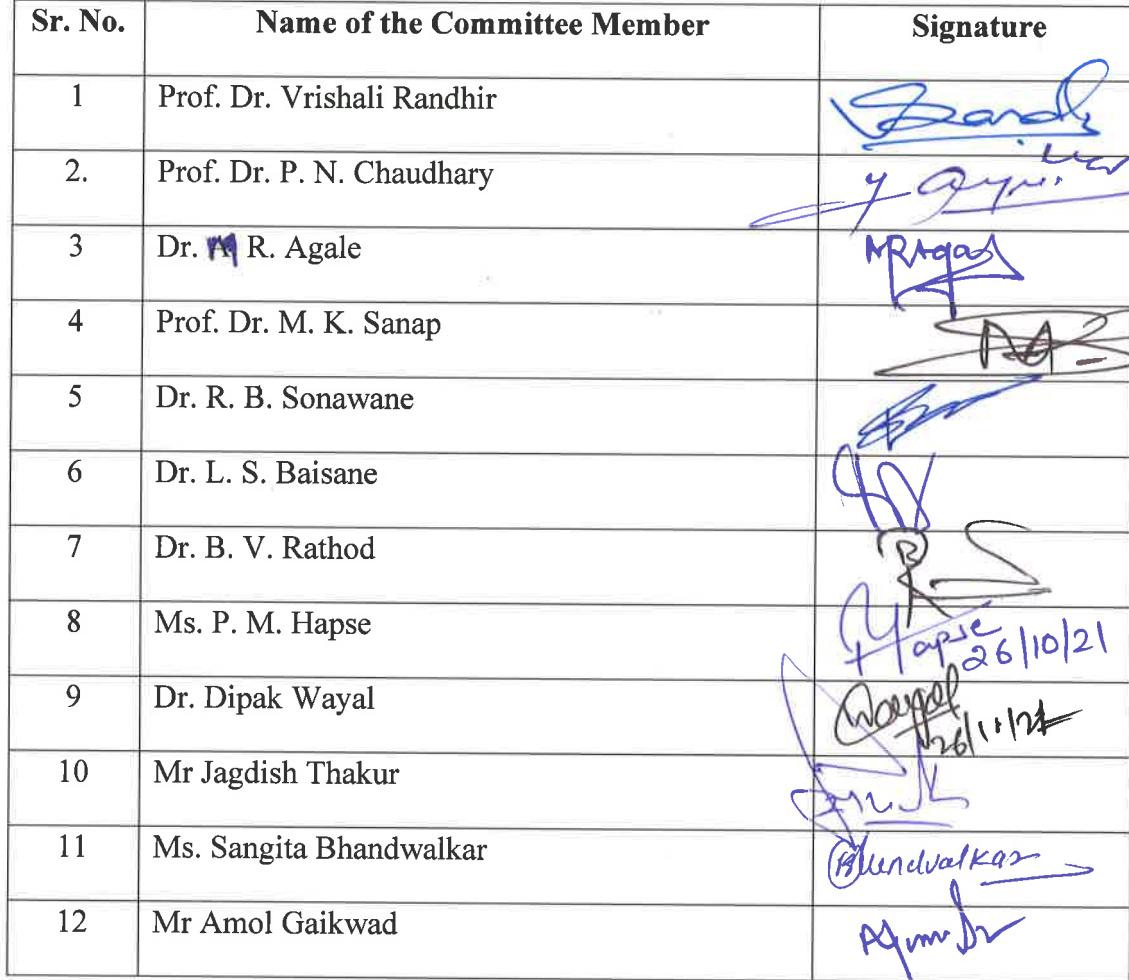 Sr. No. Name of the Committee Member Signature
1 Prof. Dr. Vrishali Randhir
2. Prof. Dr. P. N. Chaudhary
3 Dr. R. Agale ARAgale
4 Prof. Dr. M. K. Sanap
5 Dr. R. B. Sonawane
6 Dr. L. S. Baisane
7 Dr. B. V. Rathod
8 Ms. P. M. Hapse Hapse
26/10/21
9 Dr. Dipak Wayal
26/11/21
10 Mr Jagdish Thakur
11 Ms. Sangita Bhandwalkar
12 Mr Amol Gaikwad